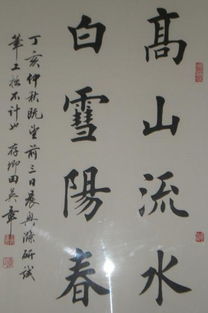 髙山流水
白雪陽春
丁亥仲秋既望前三日晨興滌研試
筆工拙不計也 存卿田英章